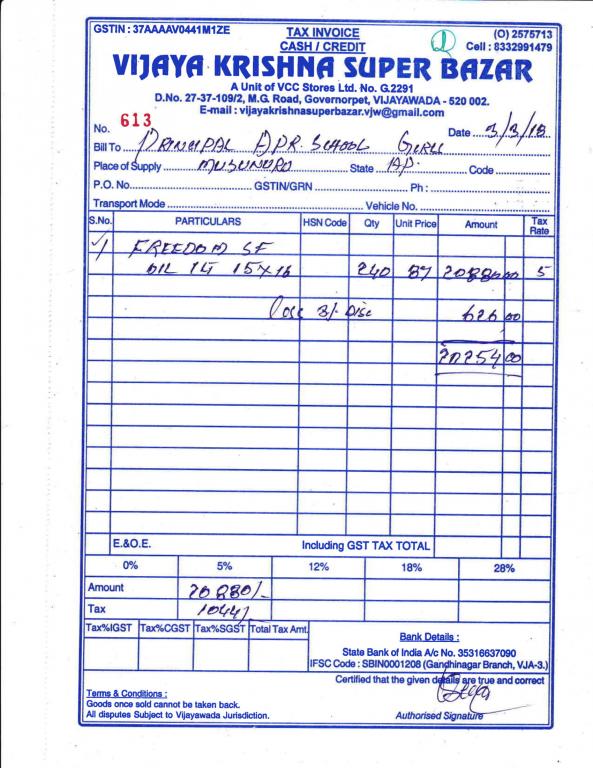 GSTIN : 37AAAAV0441M1ZE
TAX INVOICE
(O) 2575713
CASH / CREDIT
Cell : 8332991479
VIJAYA KRISHNA SUPER BAZAR
A Unit of VCC Stores Ltd. No. G.2291
D.No. 27-37-109/2, M.G. Road, Governorpet, VIJAYAWADA - 520 002.
E-mail : vijayakrishnasuperbazar.vjw@gmail.com
No. 613
Date 3/3/18
Bill To PRINCIPAL APR. SCHOOL GIRLS
Place of Supply MUSUNURU State AP. Code
P.O. No. GSTIN/GRN Ph :
Transport Mode Vehicle No.
S.No. PARTICULARS HSN Code Qty Unit Price Amount Tax Rate
1 FREEDOM SF
OIL 1L 15X16 240 87 20880 00 5
Less 3/- Disc 626 00
20254 00
E.&O.E. Including GST TAX TOTAL
0% 5% 12% 18% 28%
Amount 20880/-
Tax 1044/
Tax%IGST Tax%CGST Tax%SGST Total Tax Amt.
Bank Details :
State Bank of India A/c No. 35316637090
IFSC Code : SBIN0001208 (Gandhinagar Branch, VJA-3.)
Certified that the given details are true and correct
Terms & Conditions :
Goods once sold cannot be taken back.
All disputes Subject to Vijayawada Jurisdiction.
Authorised Signature